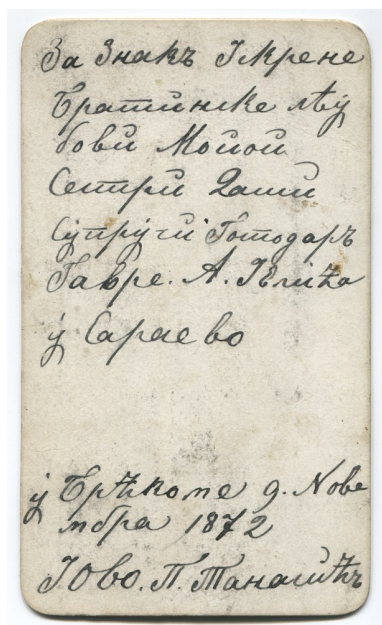 За Знакъ Їскрене
Братинske лѣу
бови Мойой
Сестри Даши
супруги Господаръ
Гавре. А. Їелића
у Сараево
у Брѣкоме 9. Nове
мбра 1872
Їово. П. Танасић